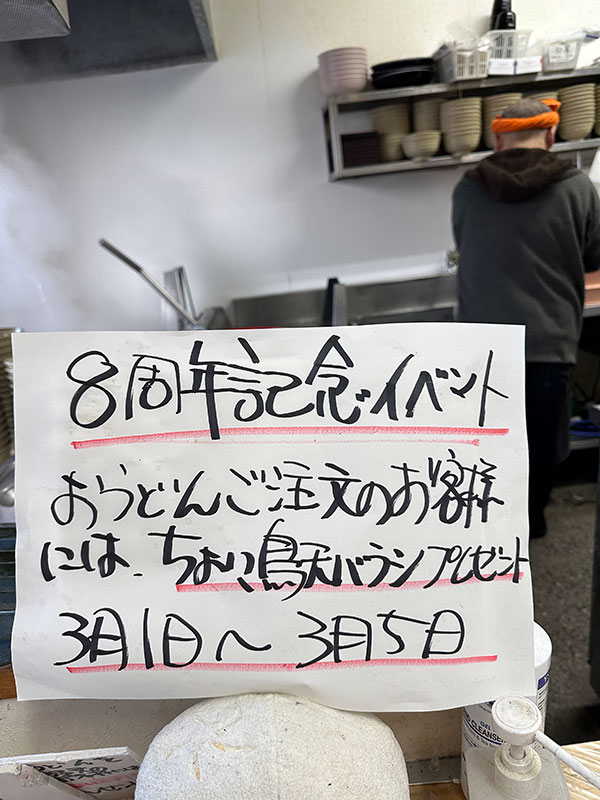 8周年記念イベント
おうどんご注文のお客様
には、ちょい鳥天バラシプレゼント
3月1日〜3月5日
CLEANSER